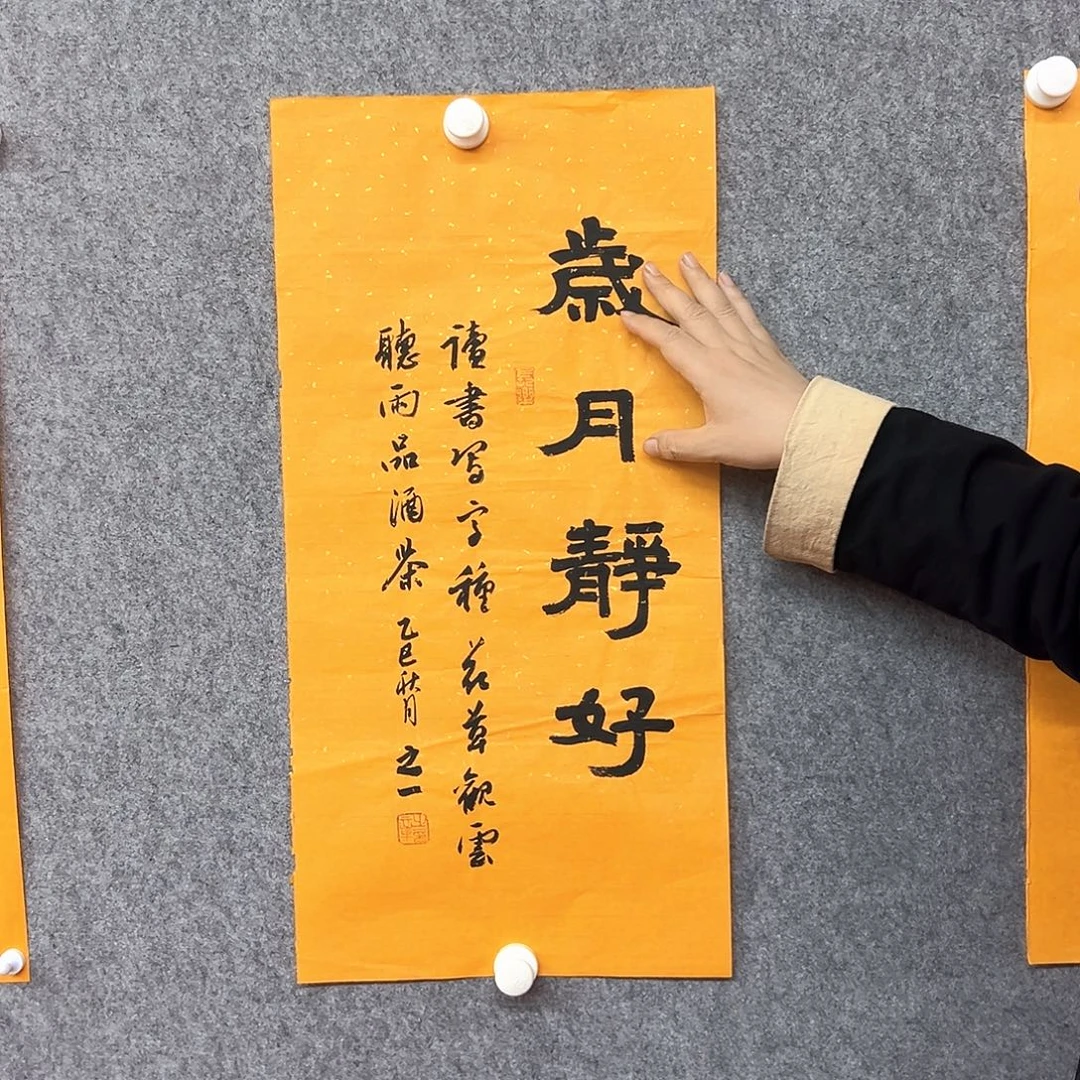 歲月靜好
讀書写字種花草觀雲
聽雨品酒茶 乙巳秋月 之一